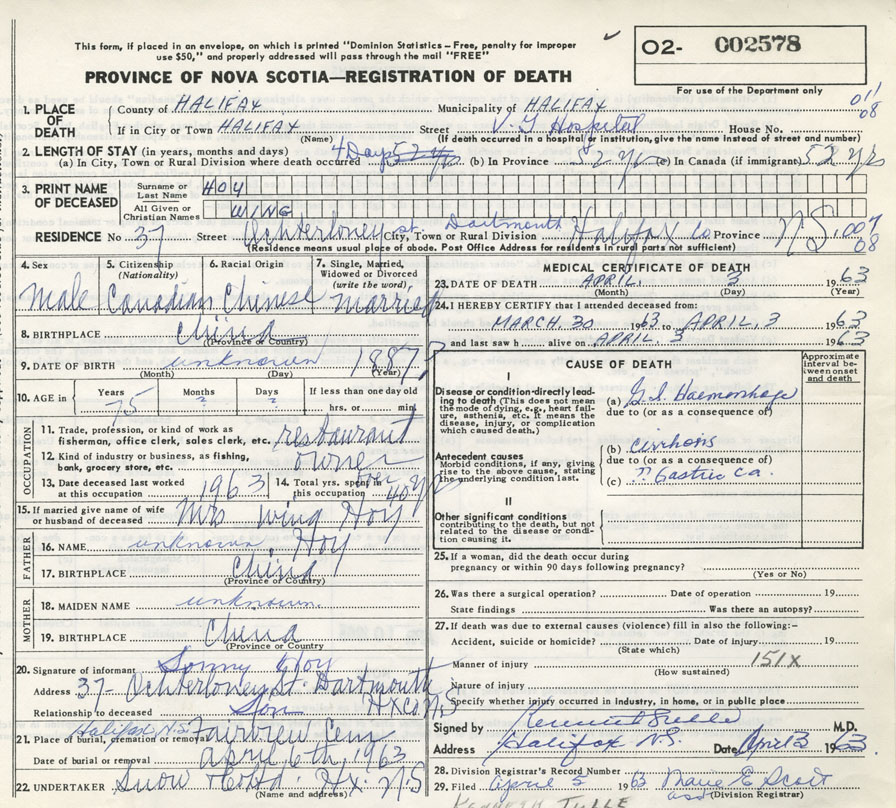 This form, if placed in an envelope, on which is printed "Dominion Statistics – Free, penalty for improper
use $50," and properly addressed will pass through the mail "FREE"
O2- 002578
For use of the Department only
PROVINCE OF NOVA SCOTIA—REGISTRATION OF DEATH
011
08
1. PLACE OF DEATH
County of HALIFAX Municipality of HALIFAX
If in City or Town HALIFAX Street V.G Hospital House No.
(Name) (If death occurred in a hospital or institution, give the name instead of street and number)
2. LENGTH OF STAY (in years, months and days)
(a) In City, Town or Rural Division where death occurred 4 Days (b) In Province 52 yrs (c) In Canada (if immigrant) 52 yrs
3. PRINT NAME OF DECEASED
Surname or Last Name HOY
All Given or Christian Names WING
RESIDENCE No. 37 Street Ochterloney St. City, Town or Rural Division Dartmouth Halifax Co Province N.S. 007
08
(Residence means usual place of abode. Post Office Address for residents in rural parts not sufficient)
4. Sex
Male
5. Citizenship
(Nationality)
Canadian
6. Racial Origin
Chinese
7. Single, Married,
Widowed or Divorced
(write the word)
married
8. BIRTHPLACE China
(Province or Country)
9. DATE OF BIRTH unknown 1887?
(Month) (Day) (Year)
10. AGE in
Years 75
Months ?
Days ?
If less than one day old
hrs. or min.
OCCUPATION
11. Trade, profession, or kind of work as
fisherman, office clerk, sales clerk, etc. restaurant
12. Kind of industry or business, as fishing,
bank, grocery store, etc. owner
13. Date deceased last worked
at this occupation 1963
14. Total yrs. spent in
this occupation over 40 yrs
15. If married give name of wife
or husband of deceased Mrs Wing Hoy
FATHER
16. NAME unknown Hoy
17. BIRTHPLACE China
(Province or Country)
MOTHER
18. MAIDEN NAME unknown.
19. BIRTHPLACE China
(Province or Country)
20. Signature of informant Sonny Hoy
Address 37- Ochterloney St. Dartmouth
Hx Co N.S
Relationship to deceased Son
21. Place of burial, cremation or removal Halifax N.S. Fairview Cem
Date of burial or removal April 6th, 1963
22. UNDERTAKER Snow & Co Ltd. Hx. N.S
(Name and address)
MEDICAL CERTIFICATE OF DEATH
23. DATE OF DEATH APRIL 3 1963
(Month) (Day) (Year)
24. I HEREBY CERTIFY that I attended deceased from:
MARCH. 30 1963 to APRIL. 3 1963
and last saw h alive on APRIL. 3 1963
CAUSE OF DEATH
Approximate
interval be-
tween onset
and death
I
Disease or condition directly lead-
ing to death (This does not mean
the mode of dying, e.g., heart fail-
ure, asthenia, etc. It means the
disease, injury, or complication
which caused death.)
(a) G.I. Haemorrhage
due to (or as a consequence of)
Antecedent causes
Morbid conditions, if any, giving
rise to the above cause, stating
the underlying condition last.
(b) cirrhosis
due to (or as a consequence of)
(c) ? Gastric ca.
II
Other significant conditions
contributing to the death, but not
related to the disease or condi-
tion causing it.
25. If a woman, did the death occur during
pregnancy or within 90 days following pregnancy?
(Yes or No)
26. Was there a surgical operation? Date of operation 19
State findings Was there an autopsy?
27. If death was due to external causes (violence) fill in also the following:–
Accident, suicide or homicide? Date of injury 19
(State which)
Manner of injury 151X
(How sustained)
Nature of injury
Specify whether injury occurred in industry, in home, or in public place
Signed by M.D.
Address Halifax N.S. Date April 3 1963
28. Division Registrar's Record Number
29. Filed April 5 1963 Marie E Scott
(Division Registrar)
KENNETH TULLE